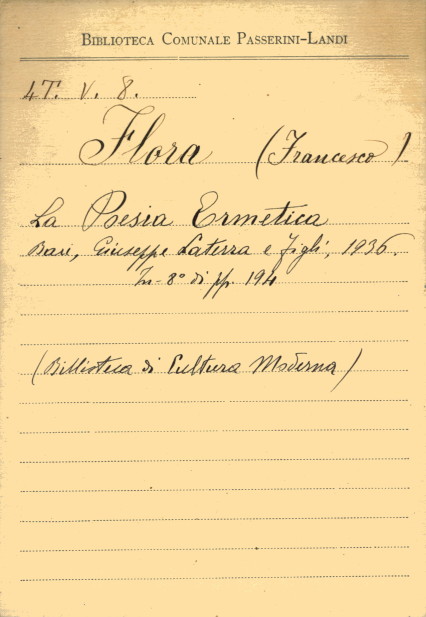 BIBLIOTECA COMUNALE PASSERINI-LANDI
4T. V. 8.
Flora (Francesco)
La Poesia Ermetica
Bari, Giuseppe Laterza e figli, 1936.
In-8° di pp. 194
(Biblioteca di Cultura Moderna)